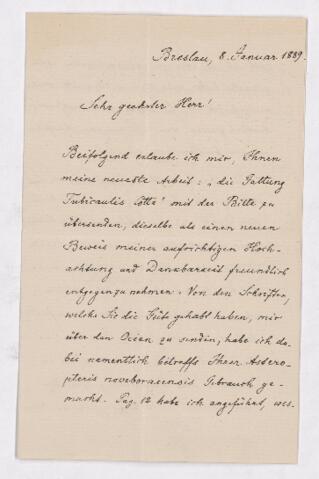 Breslau, 8. Januar 1889.
Sehr geehrter Herr!
Beifolgend erlaube ich mir, Ihnen
meine neueste Arbeit: „die Gattung
Tubicaulis Cotta" mit der Bitte zu
übersenden, dieselbe als einen neuen
Beweis meiner aufrichtigen Hoch-
achtung und Dankbarkeit freundlich
entgegenzunehmen. Von den Schriften,
welche Sie die Güte gehabt haben, mir
über den Ocean zu senden, habe ich da-
bei namentlich betreffs Ihrer Astero-
pteris noveboracensis Gebrauch ge-
macht. Pag. 12 habe ich angeführt, wes-